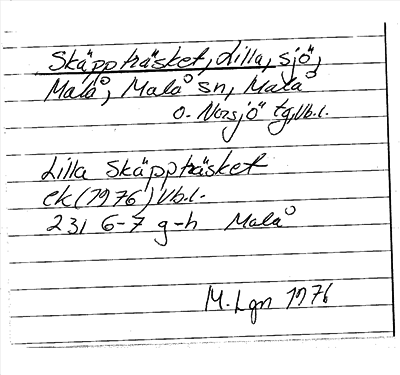 Skäppträsket, Lilla, sjö,
Malå, Malå sn, Malå
o. Norsjö tg, Vb.l.
Lilla Skäppträsket
ek (1976) Vb.l.
231 6-7 g-h Malå
M. Lgn 1976